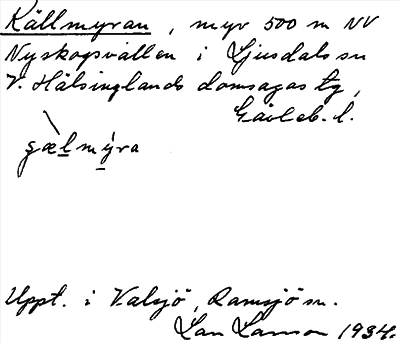 Källmyran, myr 500 m NV
Nyskogsvallen i Ljusdals sn
V. Hälsinglands domsagas tg,
Gävleb. l.
Uppt. i Valsjö, Ramsjö sn.
Lars Larsson 1934.